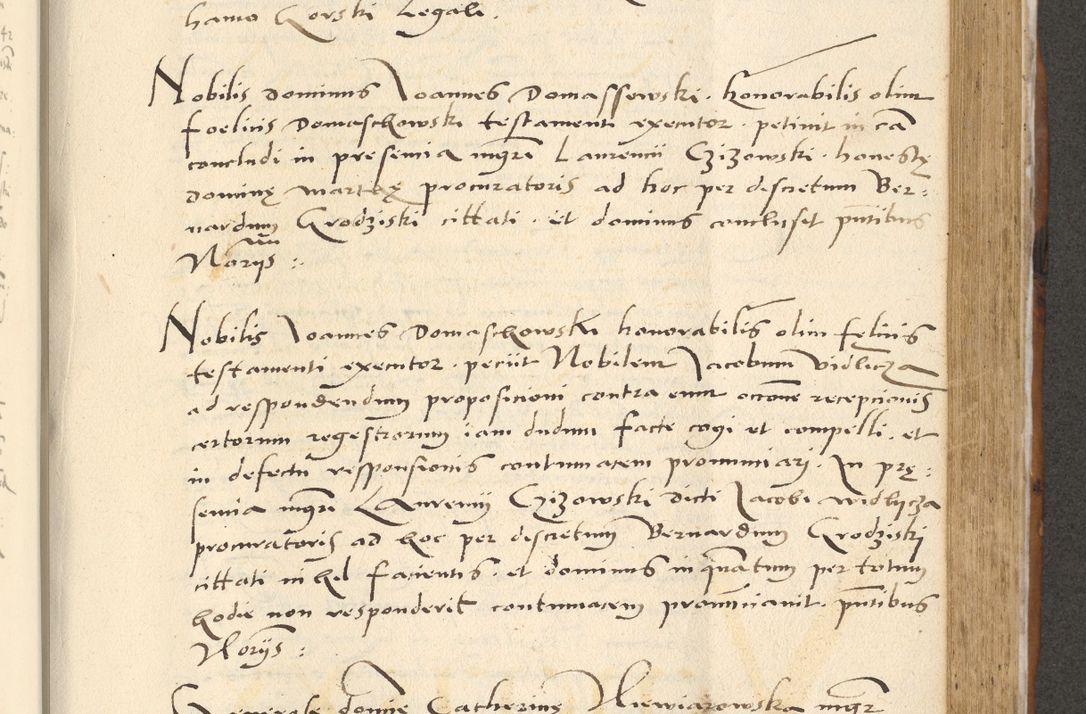 hamo Gorski Legali.
Nobilis dominus Joannes Domassewski. honorabilis olim
foelicis Domaschowski testamenti executor. petiuit in cã
concludi in presencia mgrĩ Laurencii Czizowski. honestę
dominę Marthę procuratoris ad hoc per discretum Ber:
nardum Grodziski cittati. et dominus conclusit pñtibus
Norijs :.
Nobilis Joannes Domaschowski honorabilis olim fęlicis
testamenti executor. peciit Nobilem Jacobum Vidlicza
ad respondendum proposicioni contra eum occõne recepcionis
certorum regestrorum iam dudum facte cogi et compelli. et
in defectu responsionis contumacem pronunciari. In prę:
sencia mgrĩ Laurencij Czizowski dicti Jacobi Widlijcza
procuratoris ad hoc per discretum Bernardum Grodziski
cittati nihil facientis. et dominus in quãtum per totum
hodie non responderit contumacem pronũnciauit. pñtibus
Norijs :
domic Catherinę Niewiarowska mgr